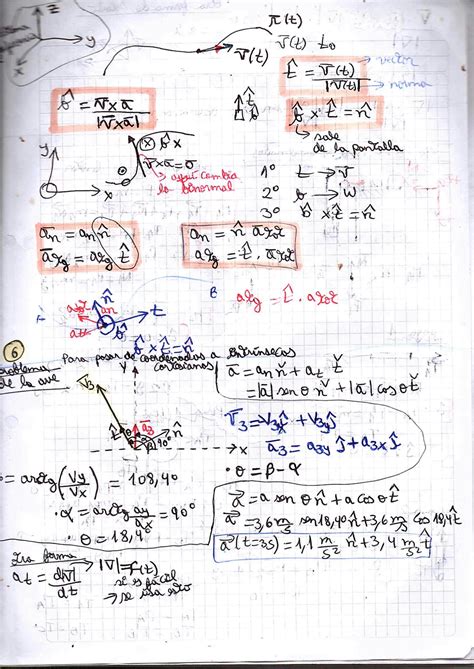 z
y
x
r̄(t)
v̄(t) t₀
v̄(t)
t̂ = v̄(t) / |v̄(t)|
→ vector
→ norma
b̂ = v̄xā / |v̄xā|
t̂
b̂
b̂ x t̂ = n̂
↳ sale de la pantalla
y
x
(x) b̂ x
v̄xā=0
↳ aquí cambia
la binormal
1º t → v̄
2º b → w
3º b̂ x t̂ = n̂
ān = an n̂
ātg = atg t̂
an = n̂ · ātot
atg = t̂ · ātot
atot
n̂
an
t
at
b̂
b̂ x t̂ = n̂
B
atg = t̂ · atot
6
problema
de la ave
Para pasar de coordenadas a intrínsecas
cartesianas
ā = an n̂ + at t̂
= |ā| sen θ n̂ + |ā| cos θ t̂
y
v̄3
ā3
t̂
n̂
90º
x
v̄3 = v3x î + v3y ĵ
ā3 = a3y ĵ + a3x î
· θ = β - α
= arctg (Vy/Vx) = 108,4º
· α = arctg ay/ax = 90º
θ = 18,4º
ā = a sen θ n̂ + a cos θ t̂
ā = 3,6 m/s² sen 18,4º n̂ + 3,6 m/s² cos 18,4 t̂
ā (t=3s) = 1,1 m/s² n̂ + 3,4 m/s² t̂
1ra forma
at = d|v̄| / dt
→ |v̄| = f(t)
si es fácil
→ se usa esto